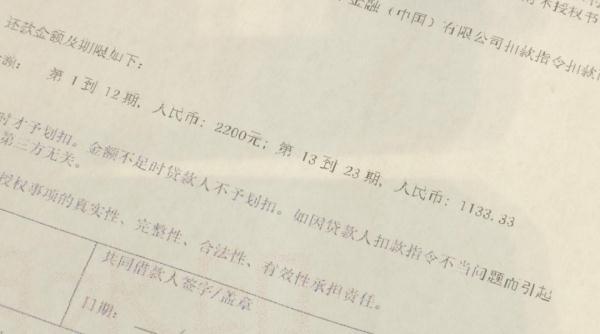 授权书
金融（中国）有限公司扣款指令扣款
还款金额及期限如下：
额： 第 1 到 12 期，人民币：2200元；第 13 到 23 期，人民币：1133.33
时才予划扣。金额不足时贷款人不予划扣。如因贷款人扣款指令不当问题而引起
第三方无关。
授权事项的真实性、完整性、合法性、有效性承担责任。
共同借款人签字/盖章
日期： /